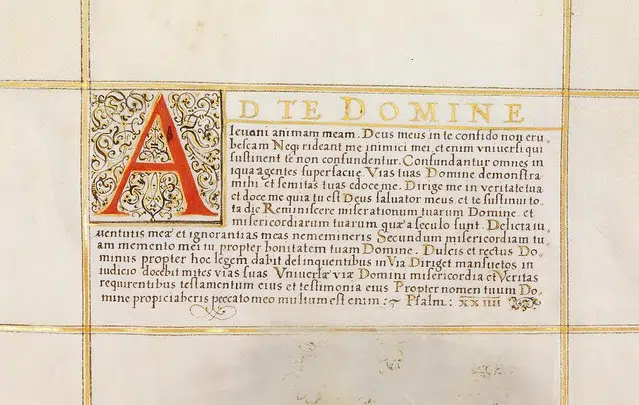 AD TE DOMINE
levavi animam meam. Deus meus in te confido non eru,
bescam Neq; rideant me inimici mei, et enim vniversi qui
sustinent te non confundentur. Confundantur omnes in
iqua agentes superfacue Vias tuas Domine demonstra
mihi et semitas tuas edoce me. Dirige me in veritate tua
et doce me quia tu es Deus saluator meus et te sustinui to
ta die Reminiscere miserationum tuarum Domine. et
misericordiarum tuarum quæ a seculo sunt. Delicta iu,
uentutis meæ et ignorantias meas ne memineris Secundum misericordiam tu,
am memento mei tu propter bonitatem tuam Domine. Dulcis et rectus Do,
minus propter hoc legem dabit delinquentibus in Via. Diriget mansuetos in
iudicio docebit mites vias suas Vniversæ viæ Domini misericordia et Veritas
requirentibus testamentum eius et testimonia eius Propter nomen tuum Do,
mine propiciaberis peccato meo multum est enim :~ Psalm: xxiiii